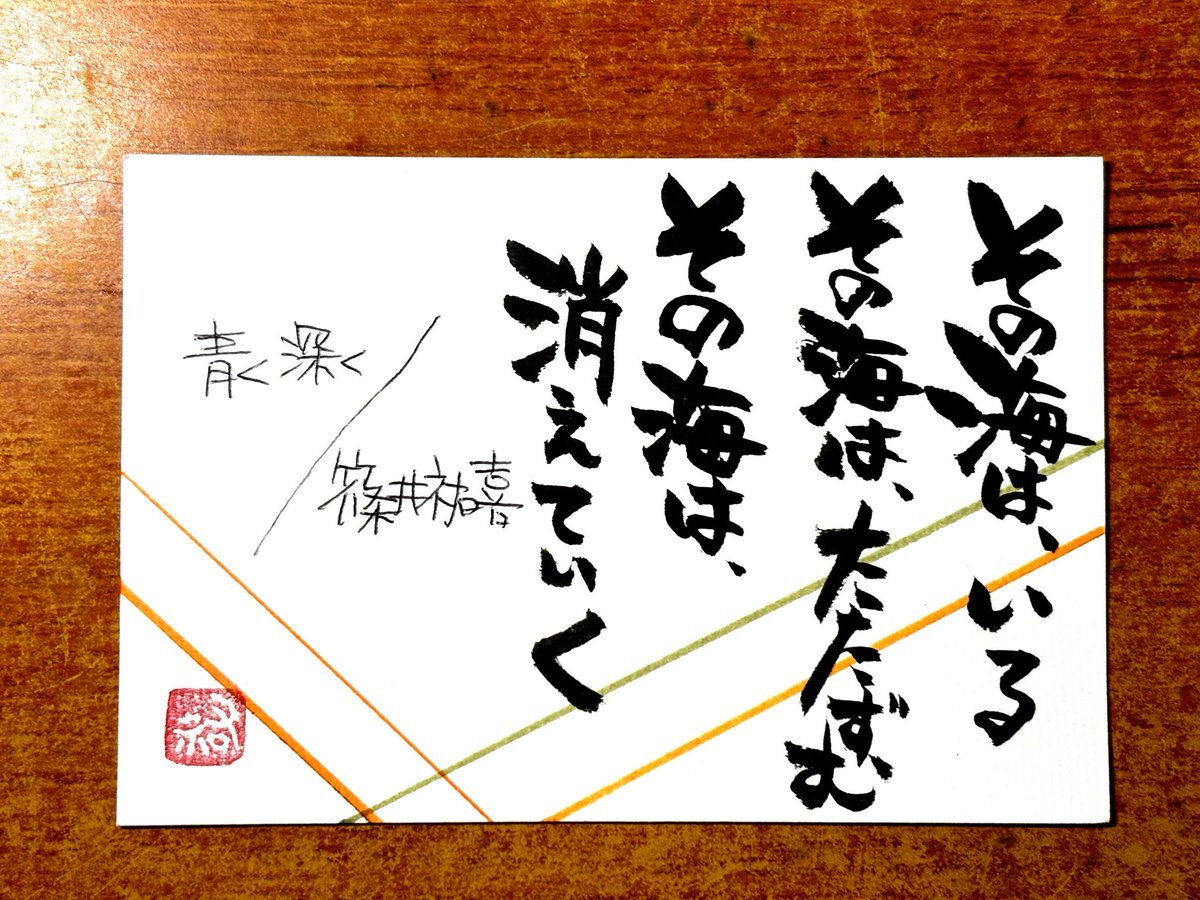 その海は、いる
その海は、たたずむ
その海は、
消えていく
青く深く／篠井祐喜